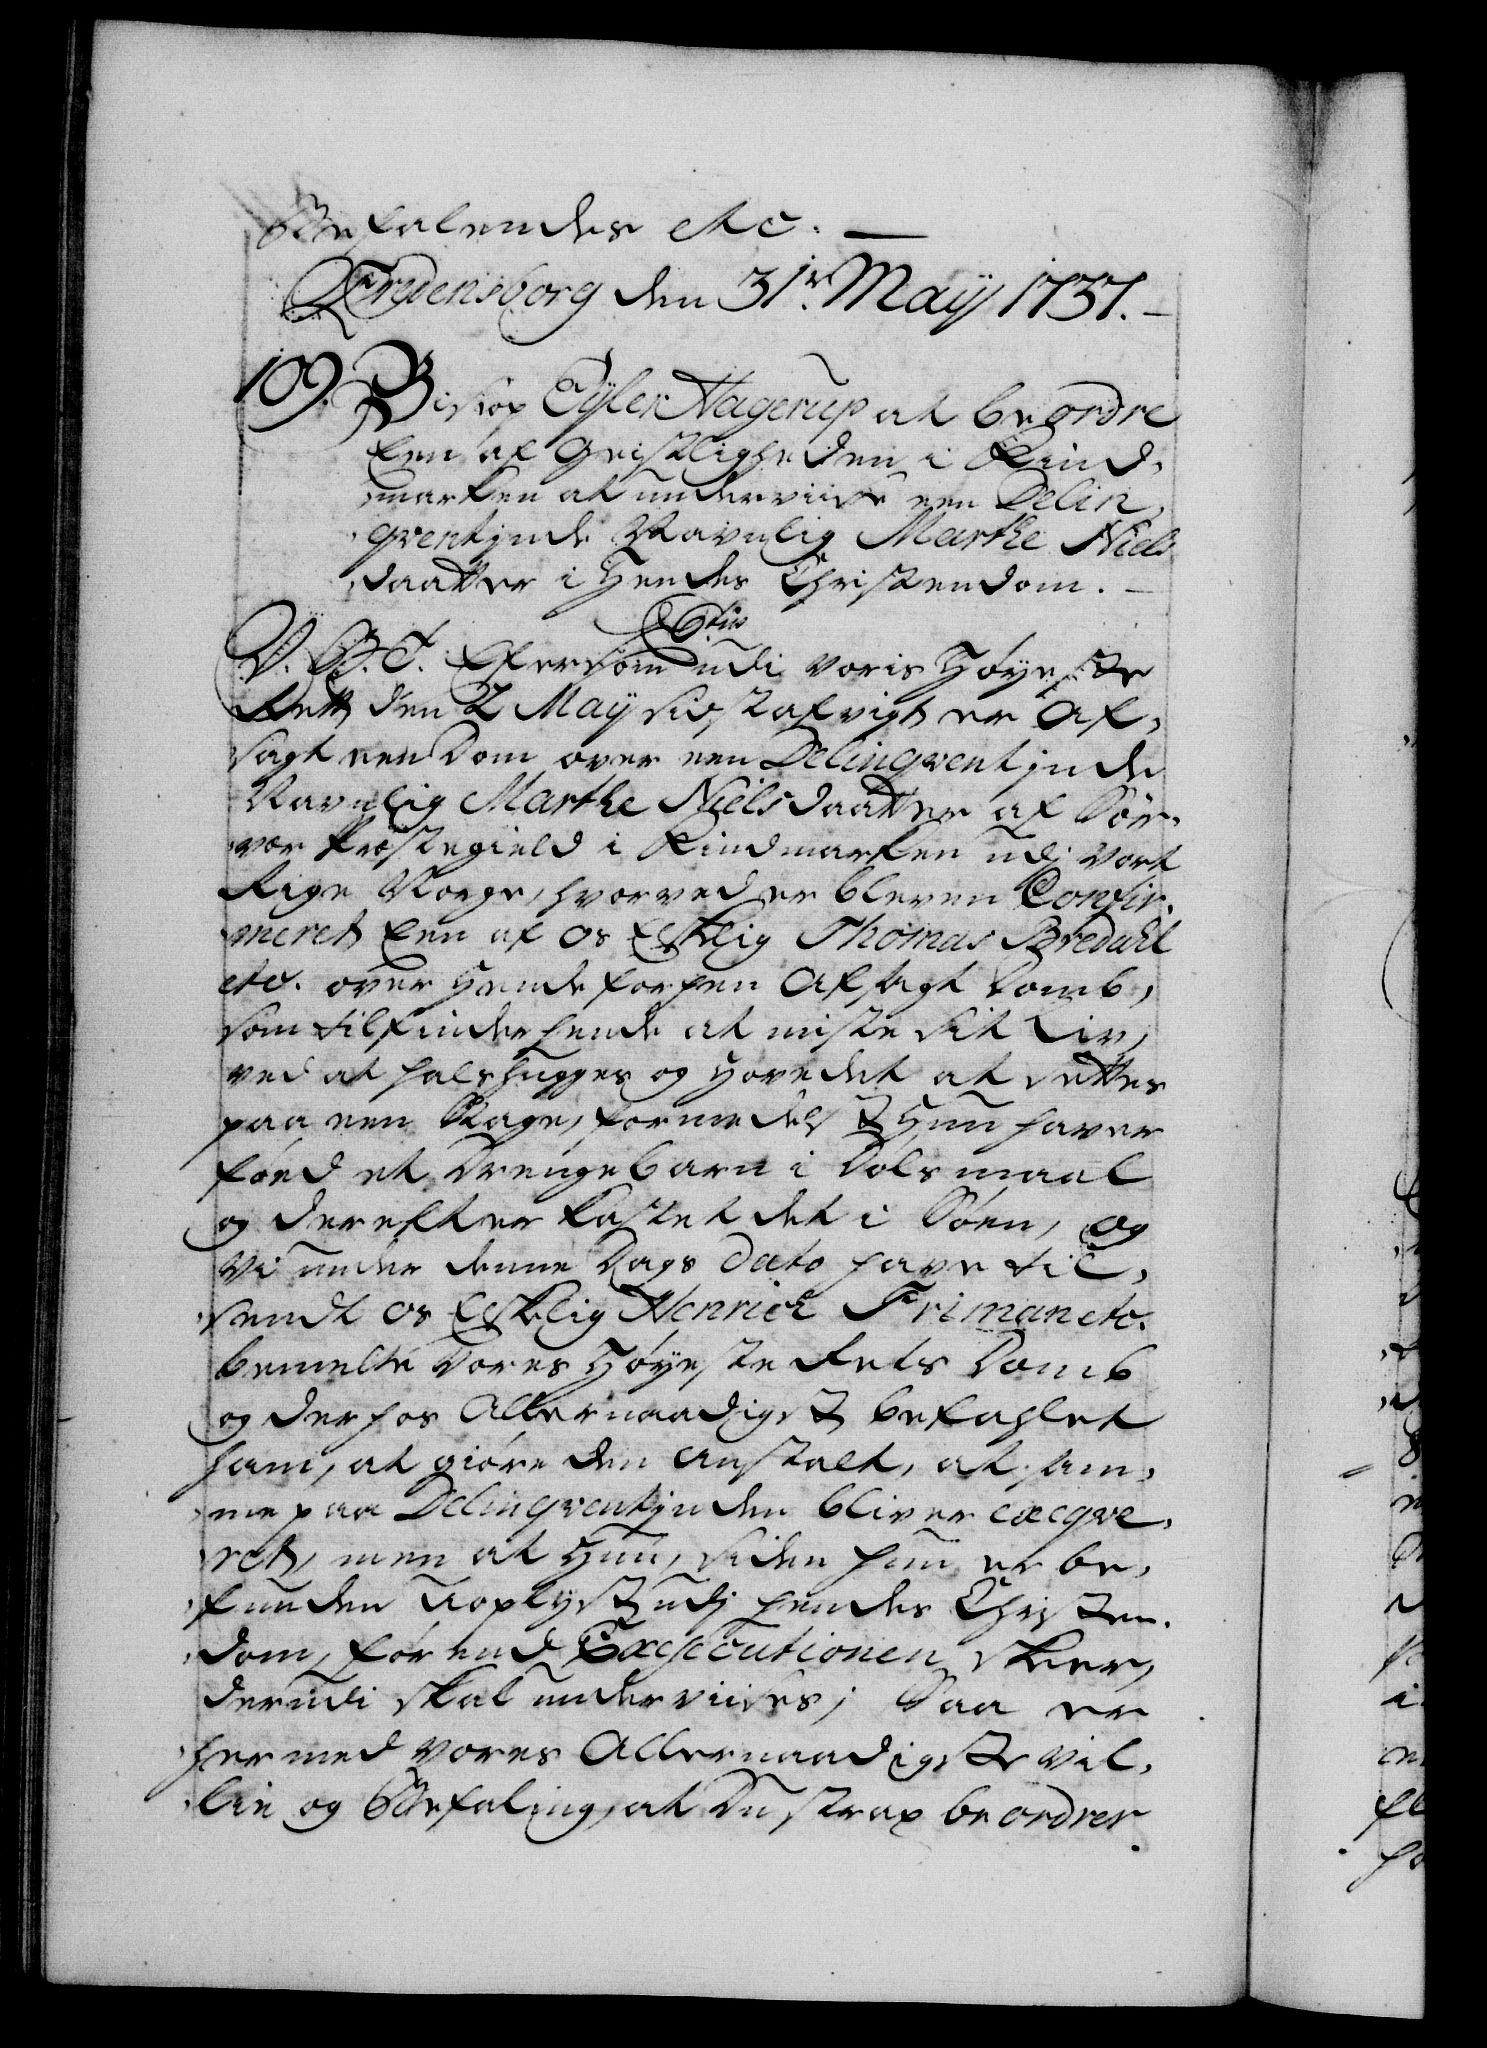 Befalendes etc. —
Fredensborg den 31te Maÿ 1737. -
109. Biskop Eyler Hagerup at beordre
Een af Geistligheden i Find,
marken at underviise een Delin,
qventinde Navnlig Marthe Niels
daatter i Hendes Christendom. -
V. G. T. Efersom udi voris Høyeste
Rett den 2 Maÿ sidstafvigt er Af,
sagt een Dom over een Delinqventinde
Navnlig Marthe Nielsdaatter af Sør,
vær Præstegield i Findmarken udj vort
Rige Norge, hvorved er bleven Confir,
meret Een af os Elskelig Thomas Bredahl
etc. over Hende forhen Afsagt Domb,
som tilfinder hende at miste sit Liv,
ved at halshugges og Hovedet at settes
paa een Stage, formedelst Hun haver
fød et Drengebarn i Dolsmaal
og derefter kastet det i Søen, og
Vi under denne Dags Dato have til,
sendt os Elskelig Henrich Friman etc.
bemelte Vores Høyeste Rets Domb
og derhos Allernaadigst befahlet
ham, at giøre den anstalt, at sam,
me paa Delinqventinden bliver exeqve,
ret, men at Hun, siden hun er be,
funden Uoplyst udj hendes Christen,
dom, før end Executionen skeer,
derudi skal underviises; Saa er
hermed Vores Allernaadigste Vil,
lie og Befaling, at Du strax beordrer